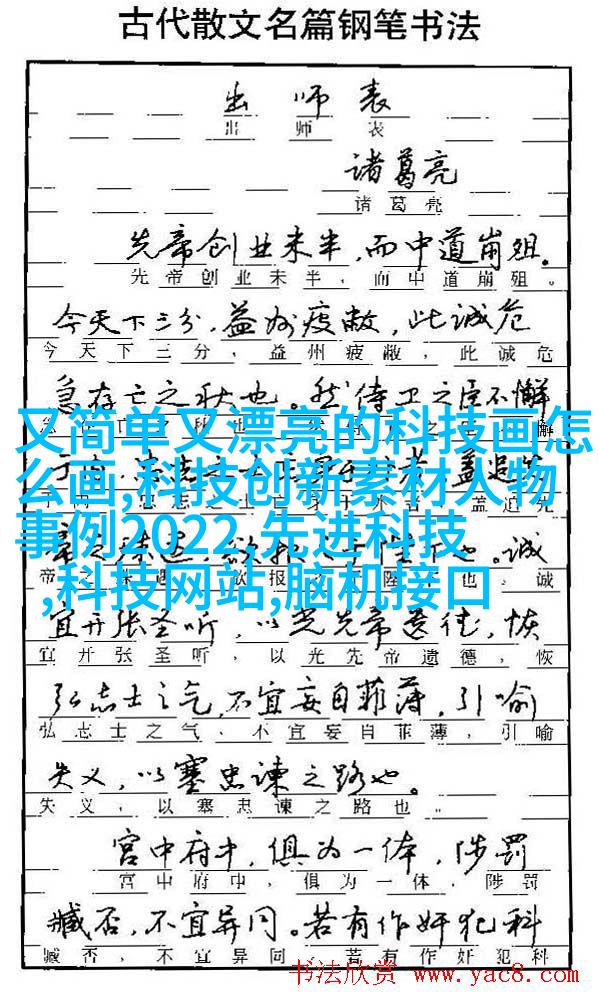 古代散文名篇钢笔书法
出师表
出师表
诸葛亮
诸葛亮
先帝创业未半,而中道崩殂。
先帝创业未半,而中道崩殂。
今天下三分,益州疲敝,此诚危
今天下三分,益州疲敝,此诚危
急存亡之秋也。然侍卫之臣不懈
又简单又漂亮的科技画怎
么画,科技创新素材人物
事例2022,先进科技
,科技网站,脑机接口
诚
帝之 报 陛 也,诚
宜开张圣听,以光先帝遗德,恢
宜开张圣听,以光先帝遗德,恢
弘志士之气,不宜妄自菲薄,引喻
弘志士之气,不宜妄自菲薄,引喻
失义,以塞忠谏之路也。
失义,以塞忠谏之路也。
宫中府中,俱为一体,陟罚
宫中府中,俱为一体,陟罚
臧否,不宜异同。若有作奸犯科
臧否,不宜异同。若有作奸犯科
书法欣赏 www.yac8.com